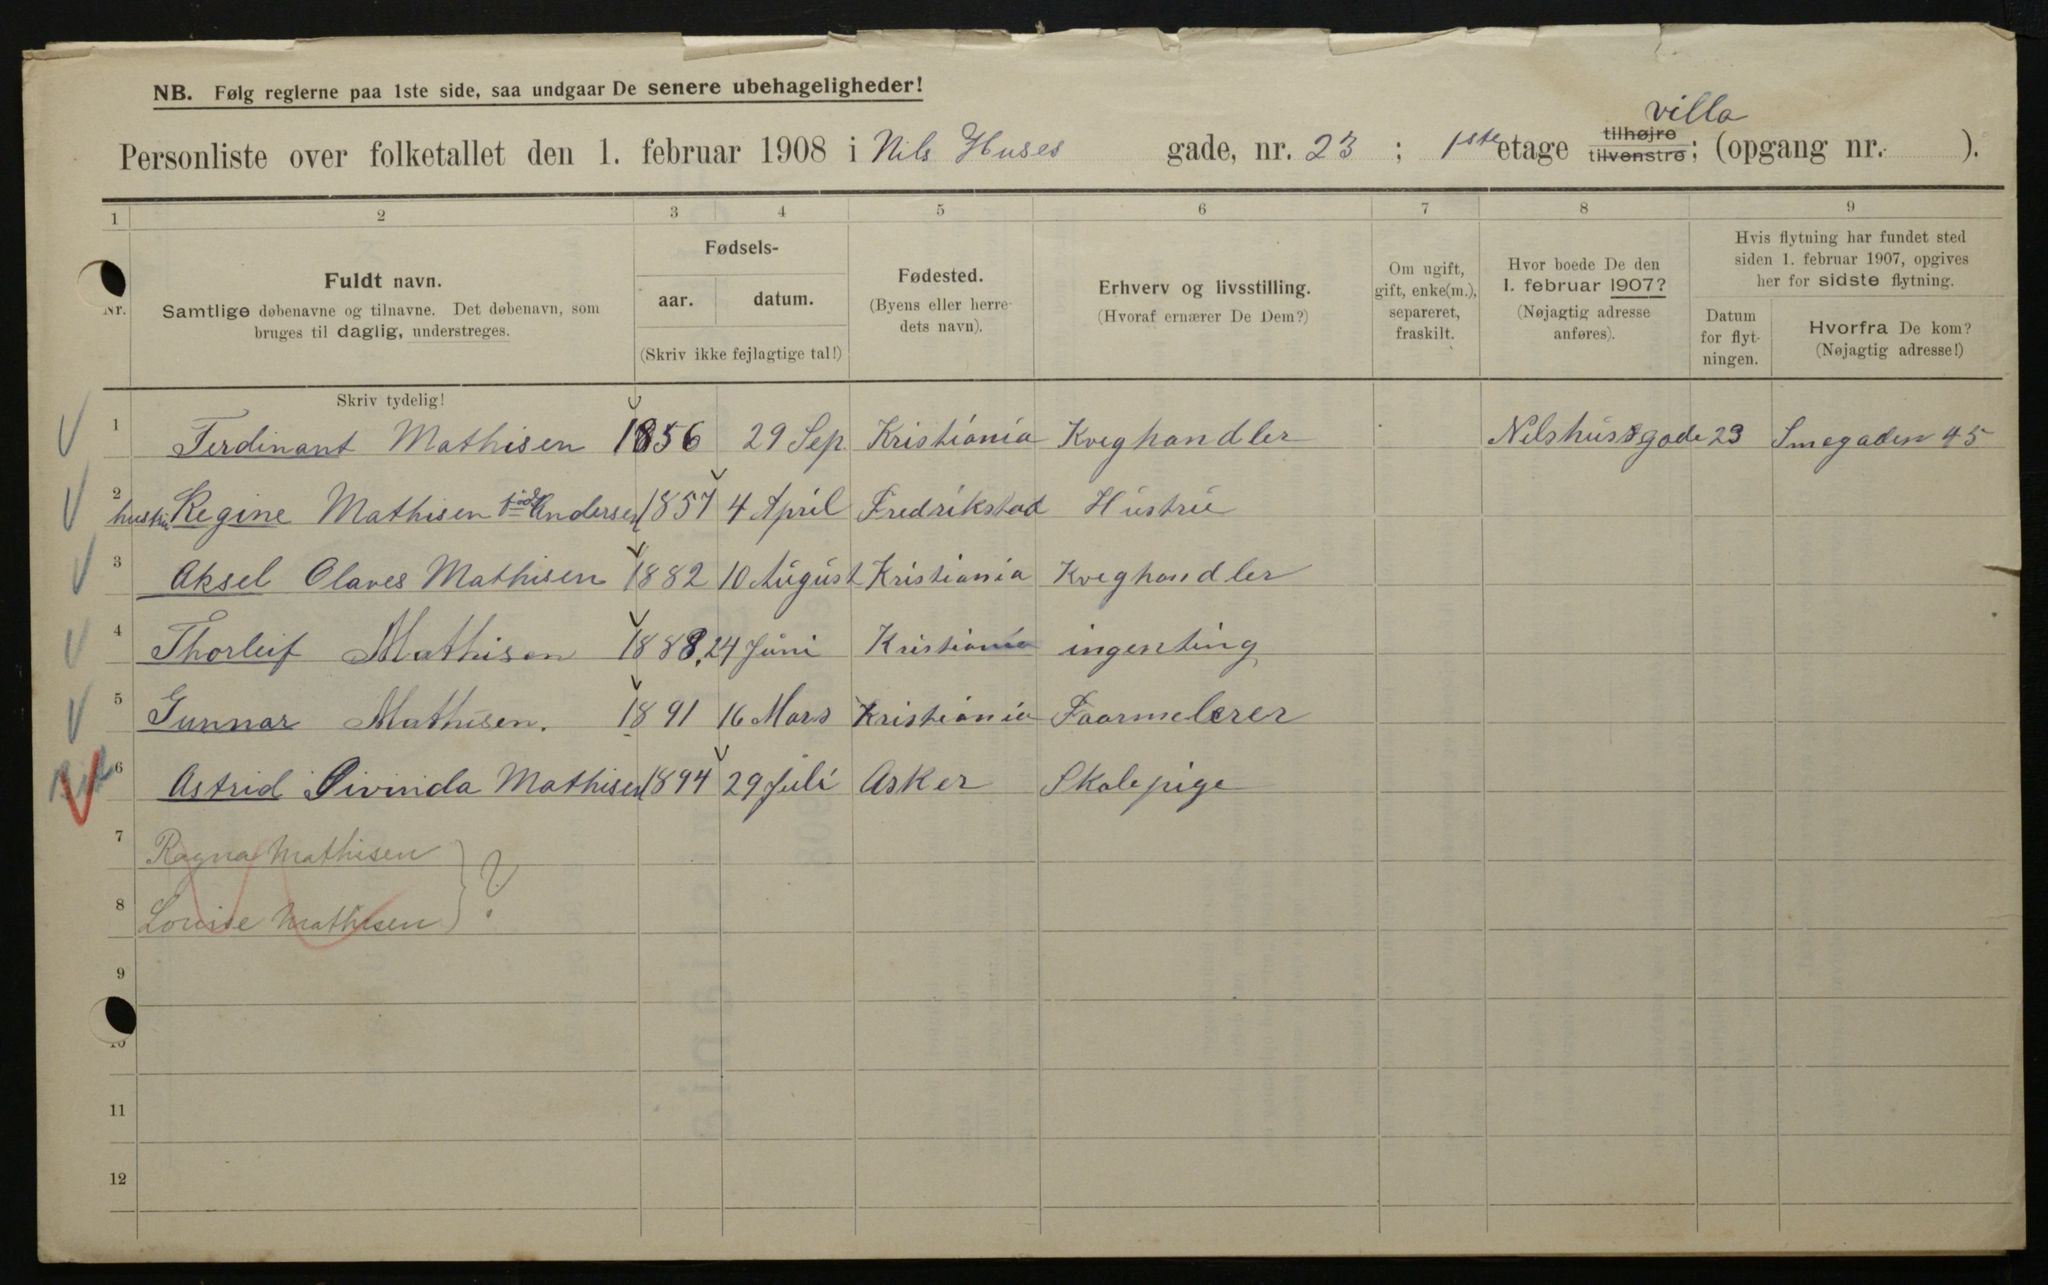 NB. Følg reglerne paa 1ste side, saa undgaar De senere ubehageligheder!
villa
Personliste over folketallet den 1. februar 1908 i Nils Huses gade, nr. 23 ; 1ste etage tilhøjre tilvenstre; (opgang nr. ).
1 2 3 4 5 6 7 8 9
Nr.
Fuldt navn.
Samtlige døbenavne og tilnavne. Det døbenavn, som
bruges til daglig, understreges.
Skriv tydelig!
Fødsels-
aar. datum.
(Skriv ikke fejlagtige tal!)
Fødested.
(Byens eller herre-
dets navn).
Erhverv og livsstilling.
(Hvoraf ernærer De Dem?)
Om ugift,
gift, enke(m.),
separeret,
fraskilt.
Hvor boede De den
1. februar 1907?
(Nøjagtig adresse
anføres).
Hvis flytning har fundet sted
siden 1. februar 1907, opgives
her for sidste flytning.
Datum
for flyt-
ningen.
Hvorfra De kom?
(Nøjagtig adresse!)
1 Ferdinant Mathisen 1856 29 Sep. Kristiania Kveghandler Nelshusgade 23 Smegaden 45
2 hustru Regine Mathisen Andersen 1857 4 April Fredrikstad Hustru
3 Aksel Olaves Mathisen 1882 10 August Kristiania Kveghandler
4 Thorleif Mathisen 1888, 24 Juni Kristiania ingenting
5 Gunnar Mathisen. 1891 16 Mars Kristiania Faarmelerer
6 Astrid Oivinda Mathisen 1894 29 Juli Asker Skolepige
7 Ragna Mathisen
?
8 Louise Mathisen
9
10
11
12